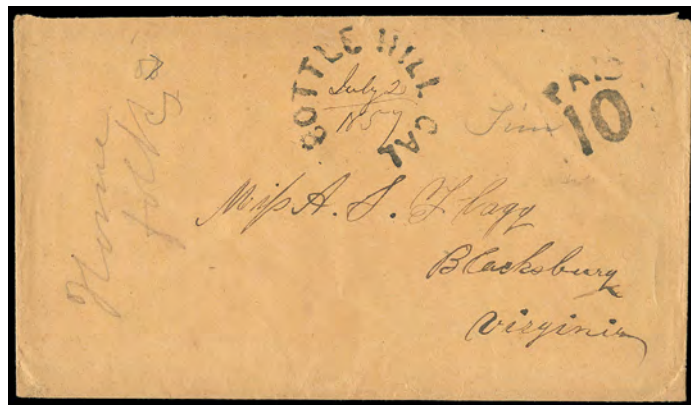 BOTTLE HILL CAL
July 2
1857
PAID
10
Miss A. S. Flagg
Blacksburg
Virginia
Home
folks